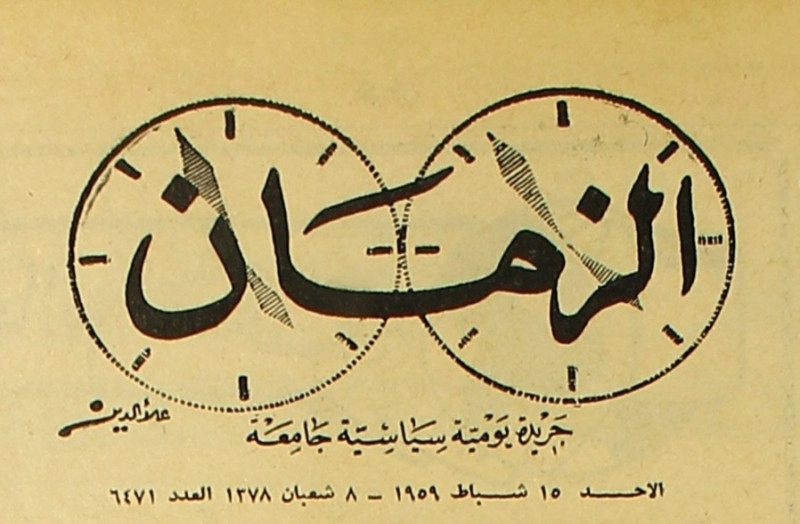 الزمان
جَريدة يَوْميّة سِيَاسِيّة جَامِعَة
علاءالدين
الاحد ١٥ شباط ١٩٥٩ – ٨ شعبان ١٣٧٨ العدد ٦٤٧١